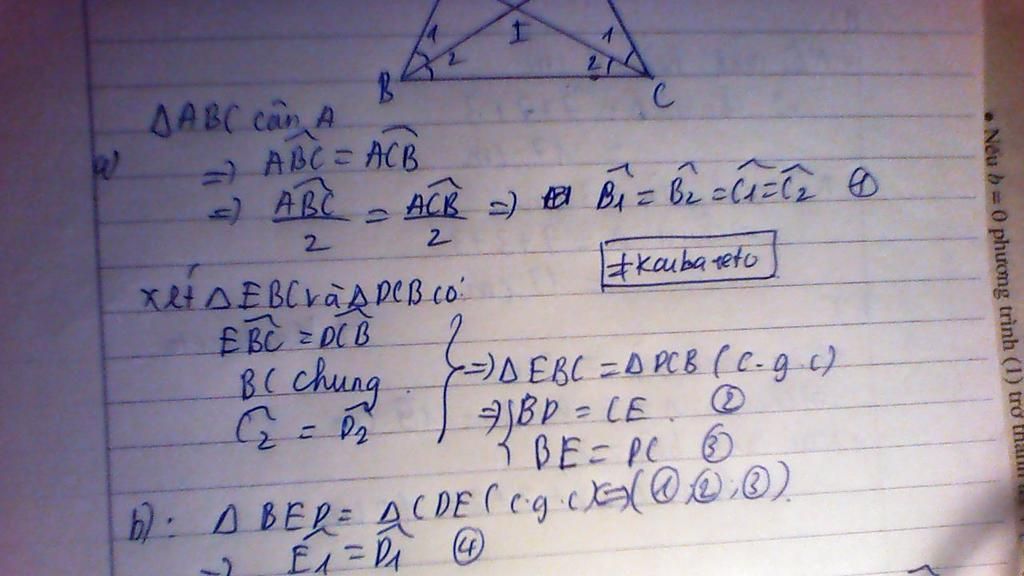 1 2 I 1 2
B C
ΔABC cân A
a) => ABC = ACB
=> ABC/2 = ACB/2 => B1 = B2 = C1 = C2 ①
#Kaubareto
xét ΔEBC và ΔDCB có:
EBC = DCB
BC chung
C2 = D2
=> ΔEBC = ΔDCB (c.g.c)
=> BD = CE. ②
BE = DC ③
b): ΔBED = ΔCDE (c.g.c) <=> (①,②,③).
=> E1 = D1 ④
• Nếu b = 0 phương trình (1) trở thành